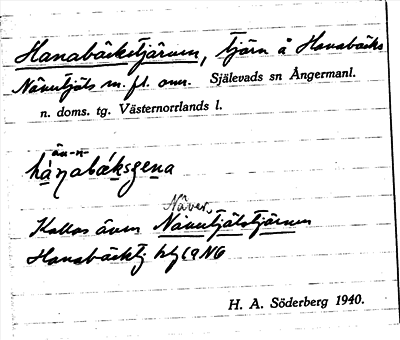 Hanabäckstjärnen, tjärn å Hanabäcks
Nävertjäls m. fl. omr. Själevads sn Ångermanl.
n. doms. tg. Västernorrlands l.
än-n-
Näver
Kallas även Nävertjälstjärnen
Hanabäckstj
H. A. Söderberg 1940.